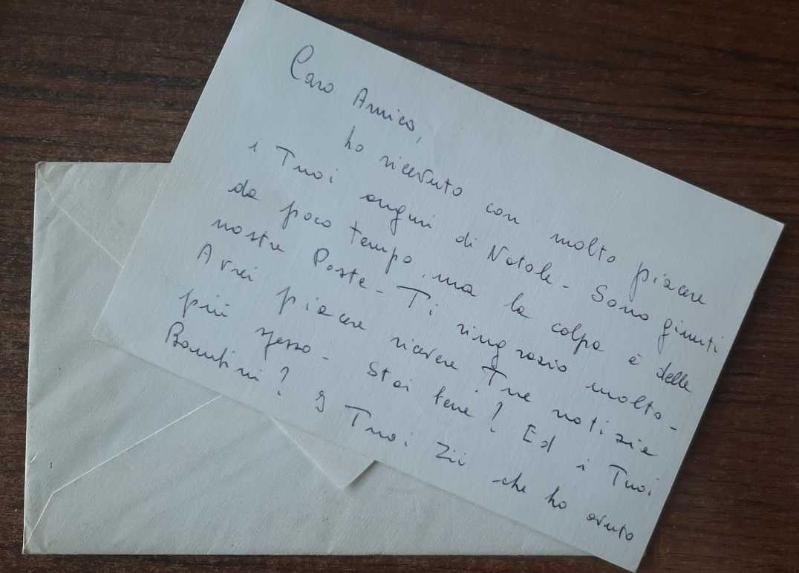 Caro Amico,
ho ricevuto con molto piacere
i Tuoi auguri di Natale - Sono giunti
da poco tempo, ma la colpa è delle
nostre Poste - Ti ringrazio molto -
Avrei piacere ricevere Tue notizie
più spesso - Stai bene? Ed i Tuoi
Bambini? I Tuoi Zii che ho avuto